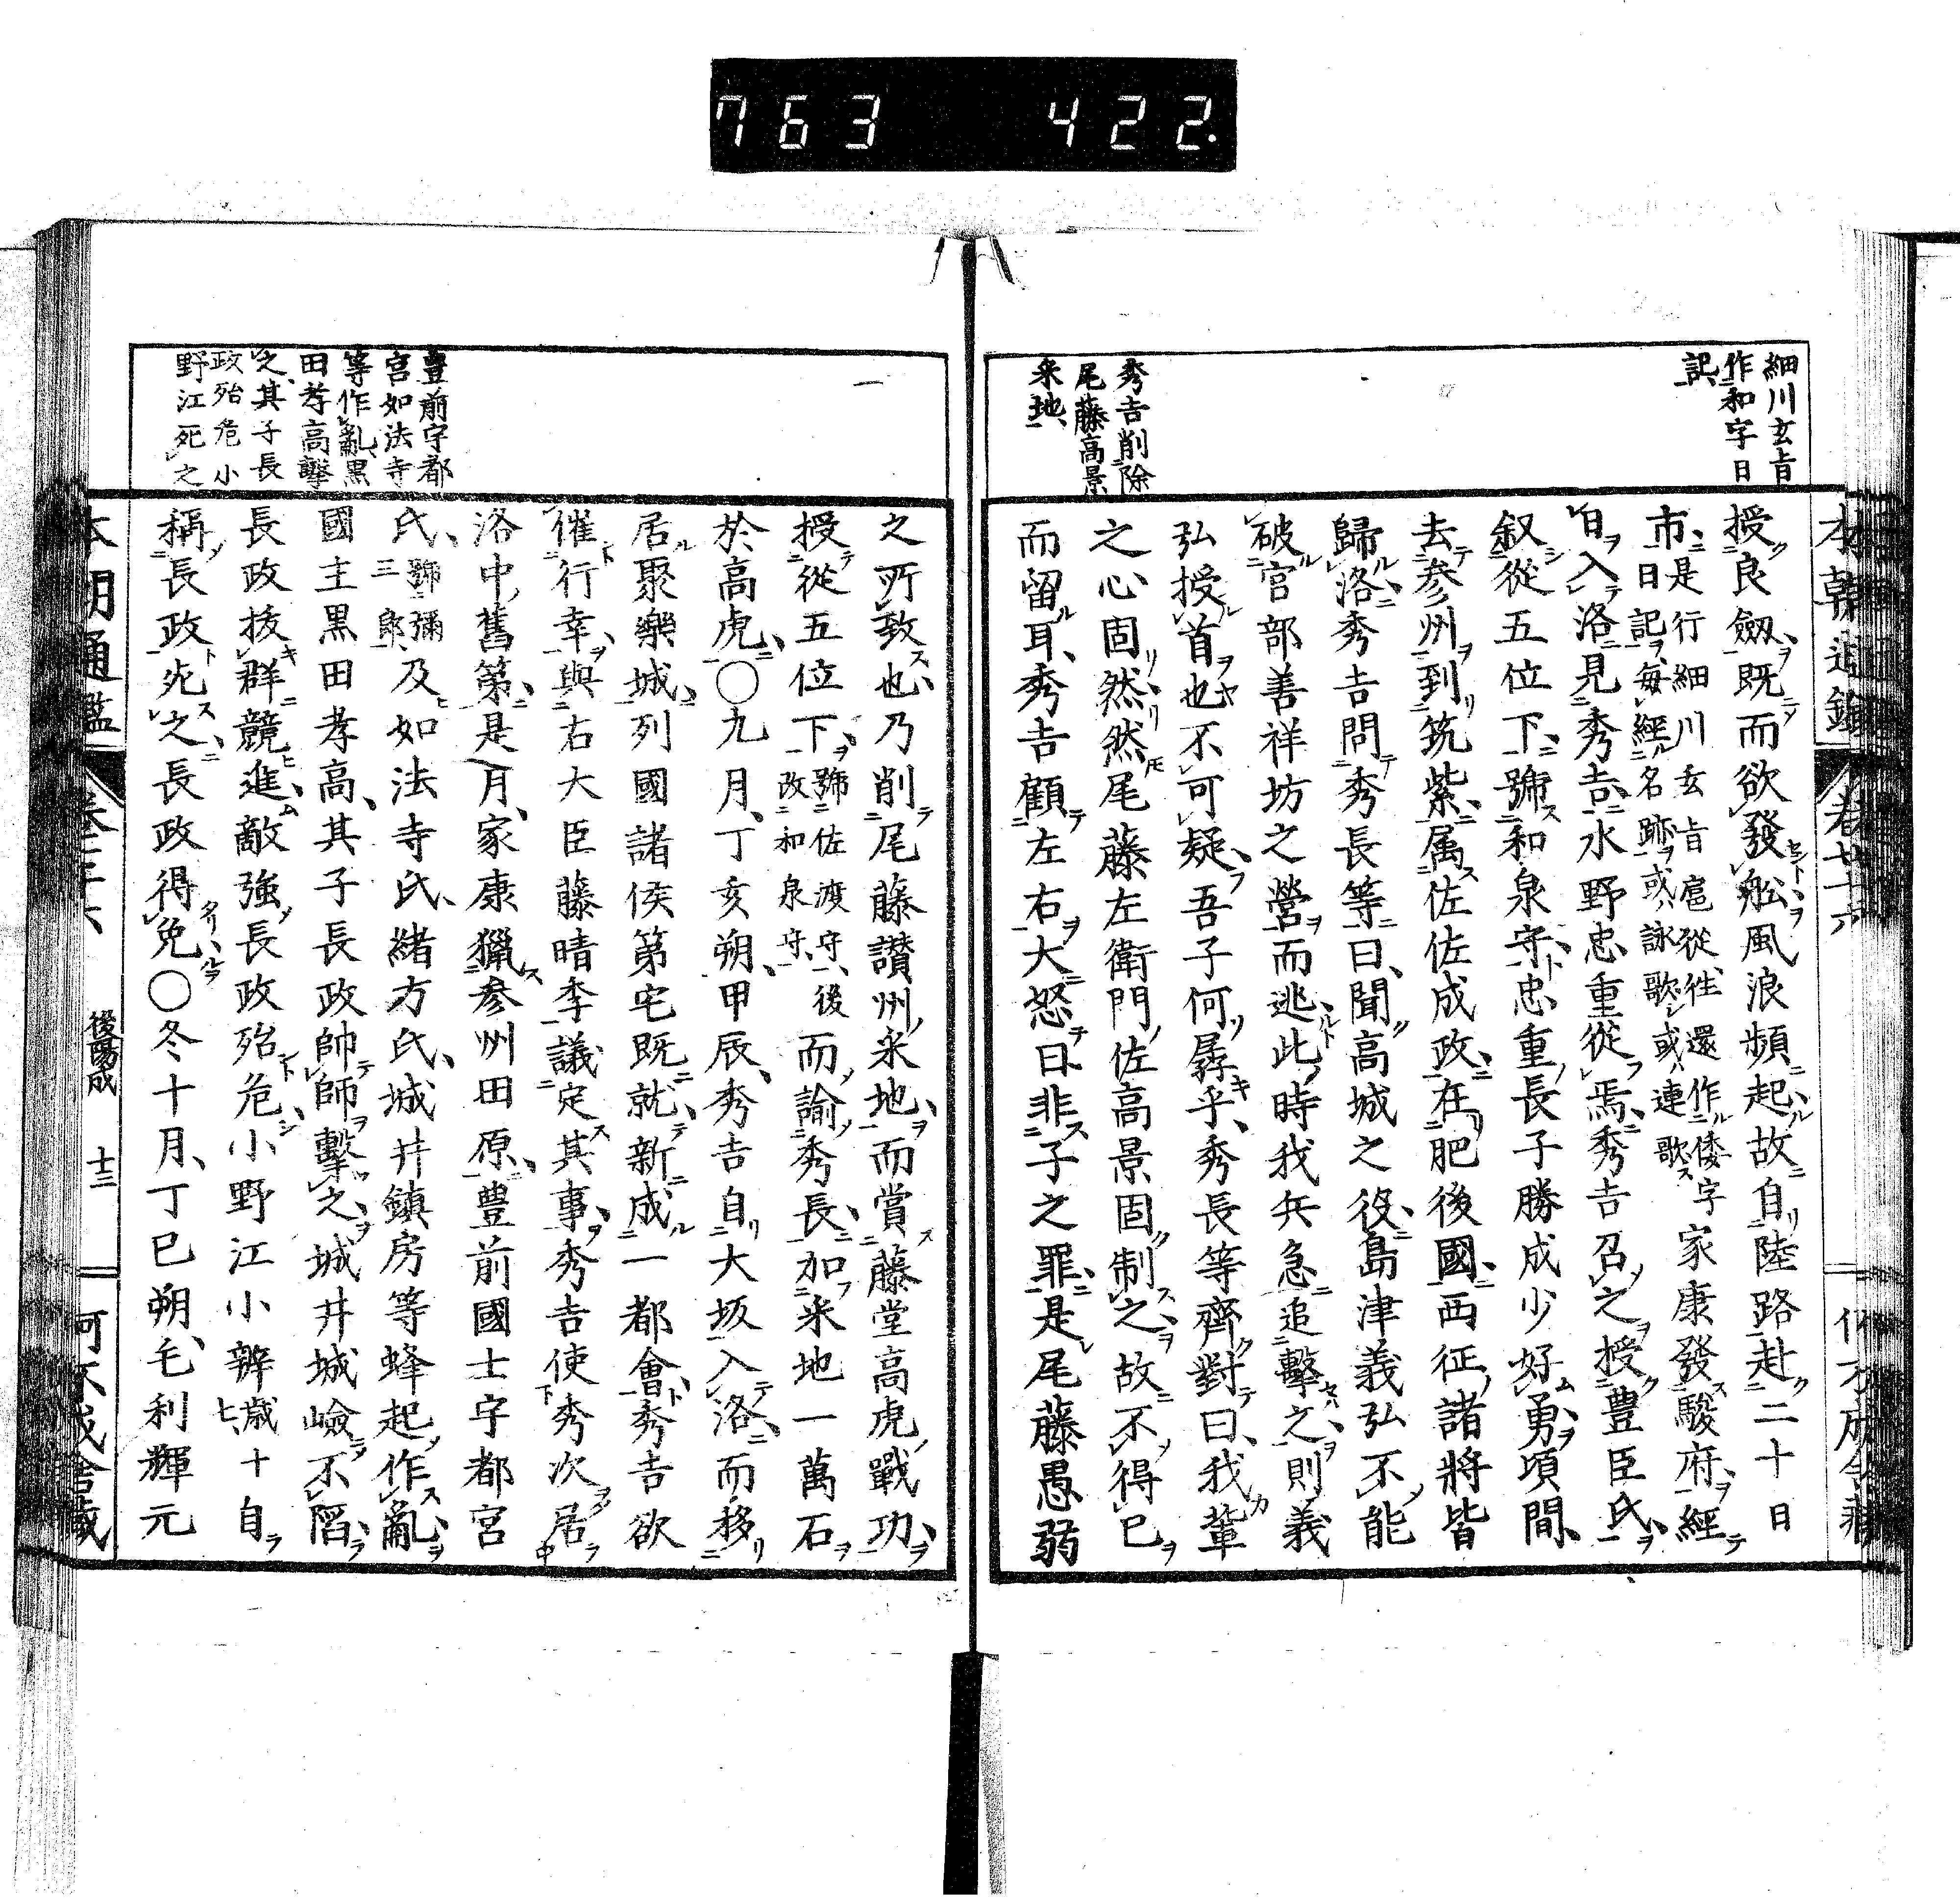 763 422.
細川玄旨
作和字日
記
秀吉削除
尾藤高景
釆地
授良劔既而欲發舩風浪頻起故自陸路赴二十日
市是行細川玄旨扈從往還作倭字
日記毎經名跡或詠歌或連歌家康發駿府經
自入洛見秀吉水野忠重從焉秀吉召之授豊臣氏
叙從五位下號和泉守忠重長子勝成少好勇項間
去参州到筑紫属佐佐成政在肥後國西征諸將皆
歸洛秀吉問秀長等曰聞高城之役島津義弘不能
破宮部善祥坊之營而逃此時我兵急追擊之則義
弘授首也不可疑吾子何孱乎秀長等齊對曰我輩
之心固然然尾藤左衛門佐高景固制之故不得已
而留耳秀吉顧左右大怒曰非子之罪是尾藤愚弱
豊前宇都
宮如法寺
等作亂黒
田孝高擊
之其子長
政殆危小
野江死之
之所致也乃削尾藤讃州釆地而賞藤堂高虎戰功
授從五位下號佐渡守後
改和泉守而諭秀長加釆地一萬石
於高虎〇九月丁亥朔甲辰秀吉自大坂入洛而移
居聚樂城列國諸侯第宅既就新成一都會秀吉欲
催行幸與右大臣藤晴季議定其事秀吉使秀次居
洛中舊第是月家康獵参州田原豊前國士宇都宮
氏號彌
三郎及如法寺氏緒方氏城井鎮房等蜂起作亂
國主黒田孝高其子長政帥師擊之城井城嶮不陷
長政拔群競進敵強長政殆危小野江小辨歳十
七自
稱長政死之長政得免〇冬十月丁巳朔毛利輝元
後陽成 十三